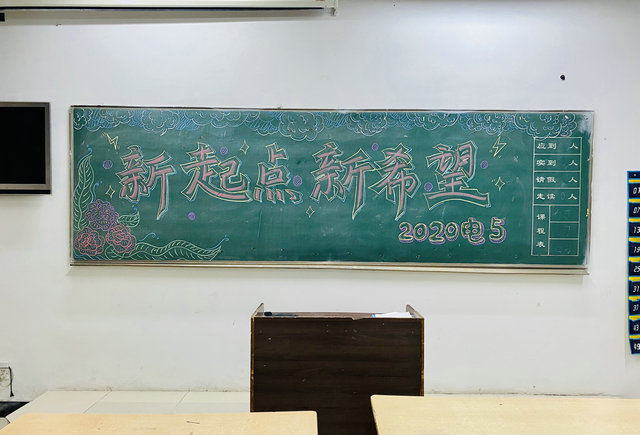 新起点 新希望
2020电5
应到 人
实到 人
请假 人
走读 人
课程表
01
07
13
19
25
31
37
43
49